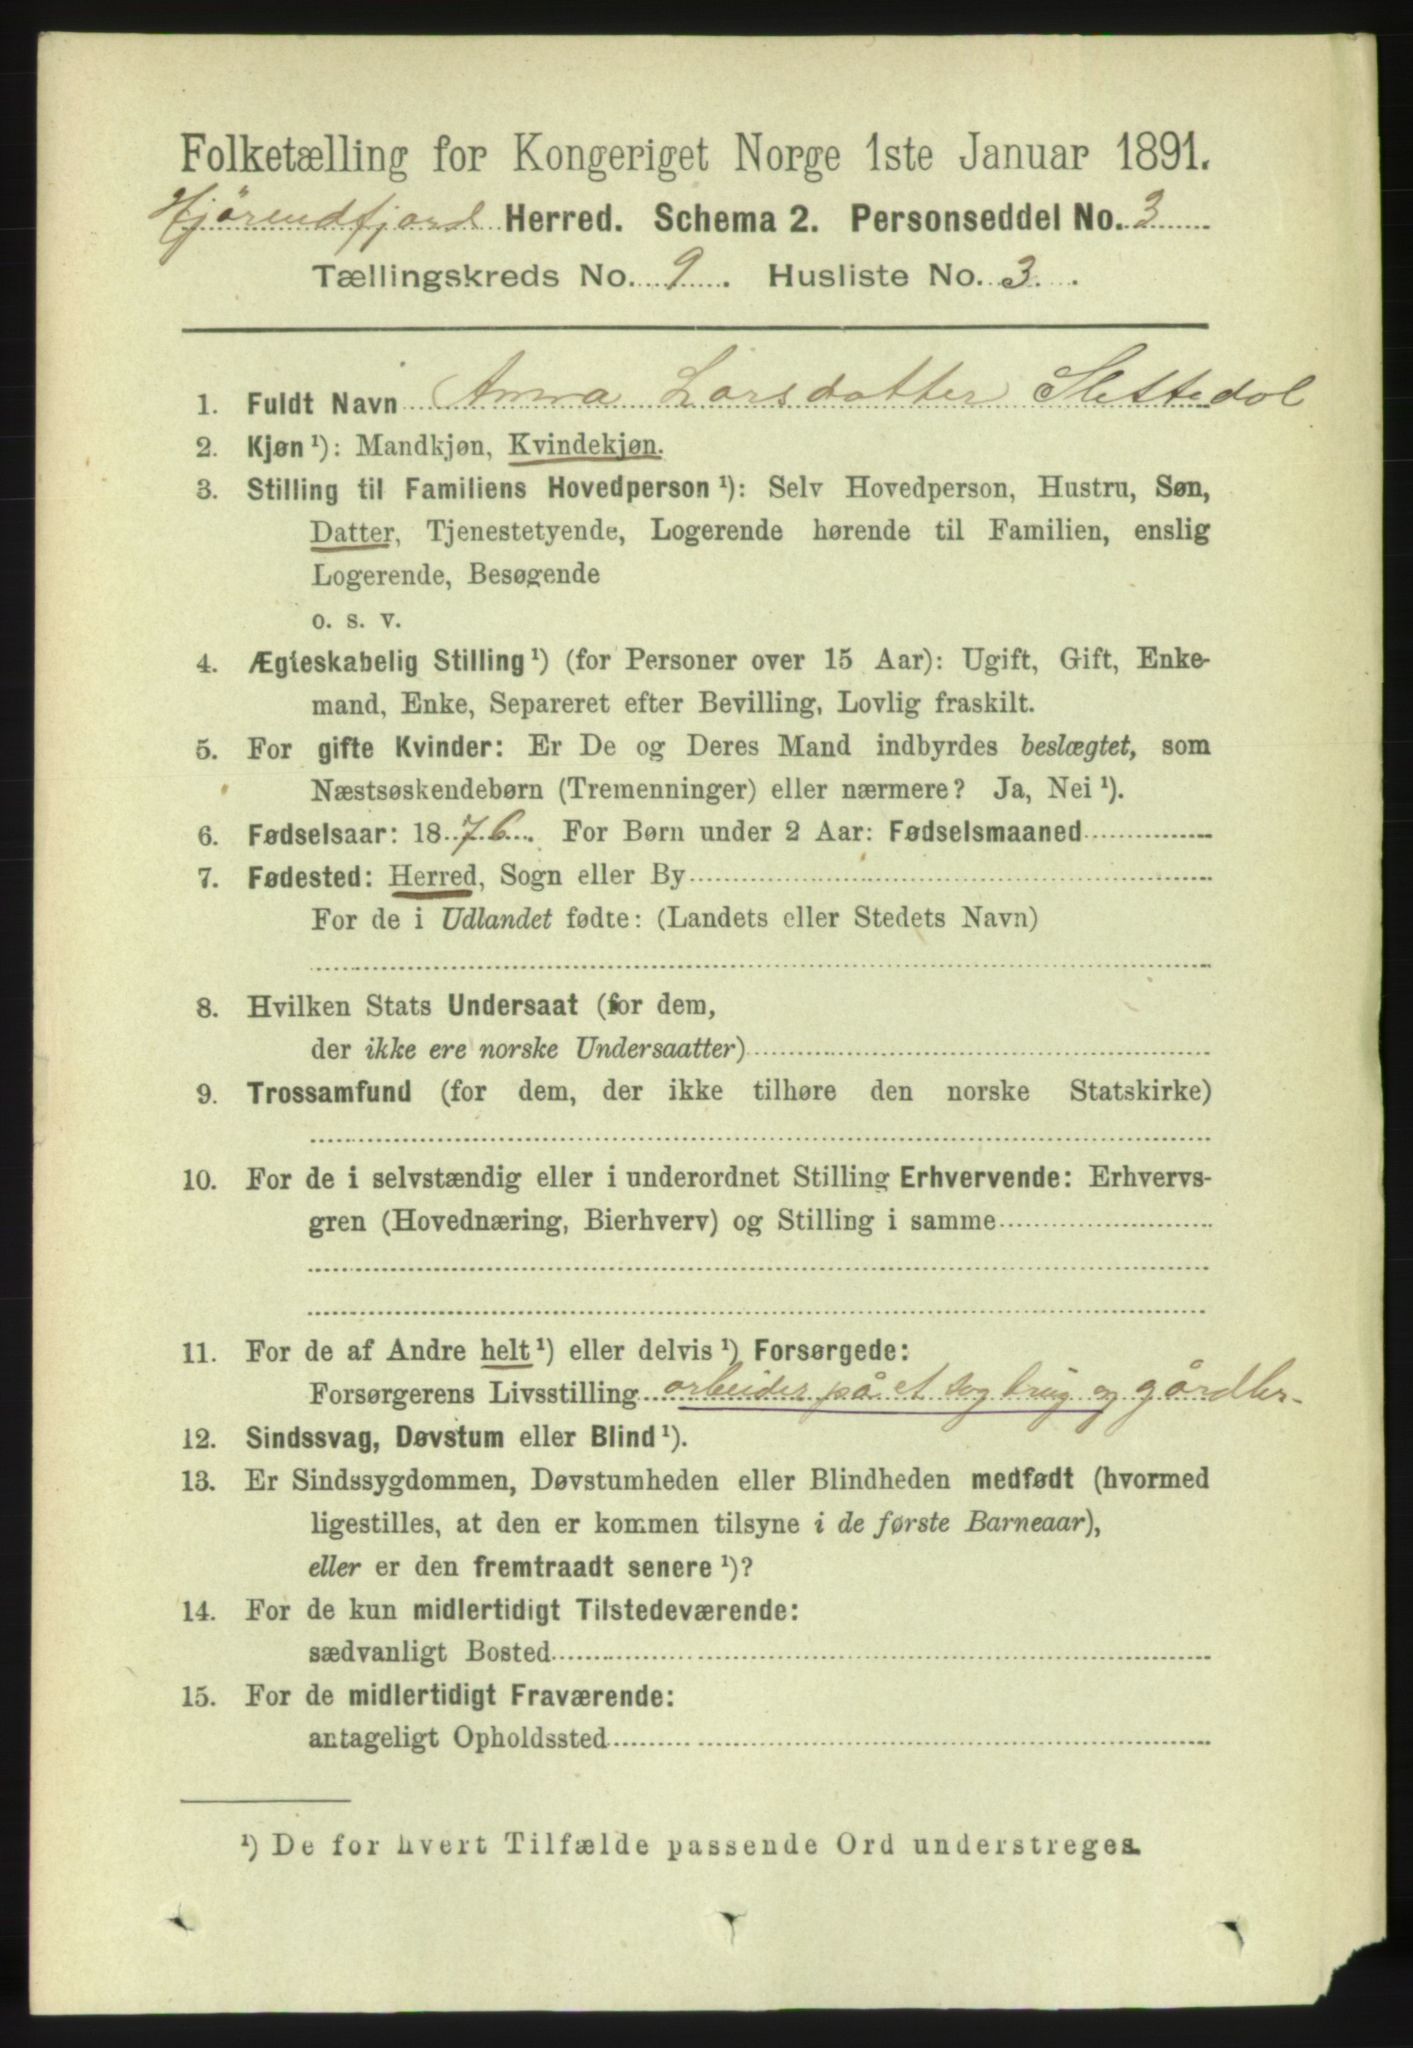 Folketælling for Kongeriget Norge 1ste Januar 1891.
Hjørendfjord Herred. Schema 2. Personseddel No. 3
Tællingskreds No. 9. Husliste No. 3.
1. Fuldt Navn Anna Larsdatter Slettedal
2. Kjøn¹): Mandkjøn, Kvindekjøn.
3. Stilling til Familiens Hovedperson¹): Selv Hovedperson, Hustru, Søn,
Datter, Tjenestetyende, Logerende hørende til Familien, enslig
Logerende, Besøgende
o. s. v.
4. Ægteskabelig Stilling¹) (for Personer over 15 Aar): Ugift, Gift, Enke-
mand, Enke, Separeret efter Bevilling, Lovlig fraskilt.
5. For gifte Kvinder: Er De og Deres Mand indbyrdes beslægtet, som
Næstsøskendebørn (Tremenninger) eller nærmere? Ja, Nei¹).
6. Fødselsaar: 1876. For Børn under 2 Aar: Fødselsmaaned
7. Fødested: Herred, Sogn eller By
For de i Udlandet fødte: (Landets eller Stedets Navn)
8. Hvilken Stats Undersaat (for dem,
der ikke ere norske Undersaatter)
9. Trossamfund (for dem, der ikke tilhøre den norske Statskirke)
10. For de i selvstændig eller i underordnet Stilling Erhvervende: Erhvervs-
gren (Hovednæring, Bierhverv) og Stilling i samme
11. For de af Andre helt¹) eller delvis¹) Forsørgede:
Forsørgerens Livsstilling arbeider på et sagbrug og gårdbr.
12. Sindssvag, Døvstum eller Blind¹).
13. Er Sindssygdommen, Døvstumheden eller Blindheden medfødt (hvormed
ligestilles, at den er kommen tilsyne i de første Barneaar),
eller er den fremtraadt senere¹)?
14. For de kun midlertidigt Tilstedeværende:
sædvanligt Bosted
15. For de midlertidigt Fraværende:
antageligt Opholdssted
¹) De for hvert Tilfælde passende Ord understreges.